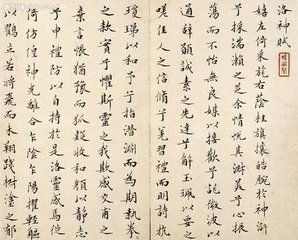 洛神賦
嬉左倚采旄右蔭桂旗攘皓腕於神滸
兮采湍瀨之玄芝余情悅其淑美兮心振
蕩而不怡無良媒以接歡兮託微波以
通辭願誠素之先達兮解玉珮以要之
嗟佳人之信修兮羌習禮而明詩抗
瓊珶以和予兮指潛淵而為期執拳
拳之款實兮懼斯靈之我欺感交甫之
棄言兮悵猶豫而狐疑收和顏以靜志
兮申禮防以自持於是洛靈感焉徙
倚彷徨神光離合乍陰乍陽擢輕軀
以鶴立若將飛而未翔踐椒塗之郁